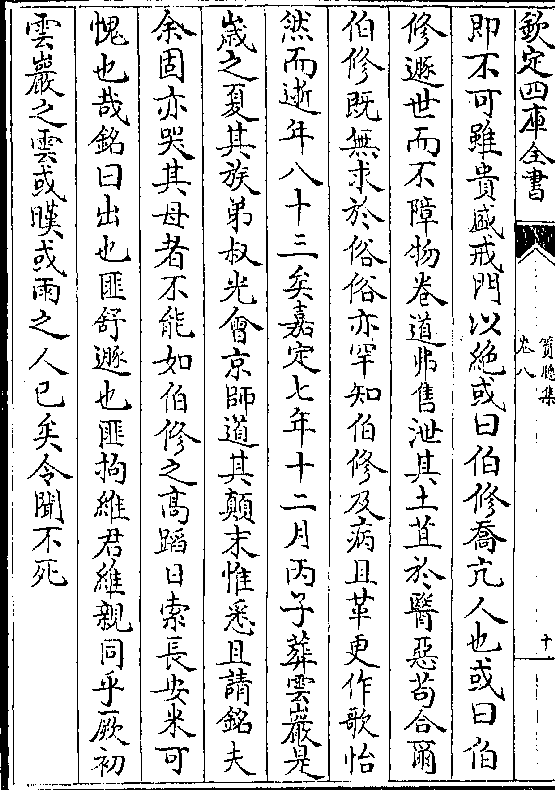 欽定四庫全書
篔牕集
卷八
十
即不可雖貴盛戒門以絶或曰伯修喬亢人也或曰伯
修遯世而不障物卷道弗售泄其土苴於醫惡茍合爾
伯修既無求於俗俗亦罕知伯修及病且革更作歌怡
然而逝年八十三矣嘉定七年十二月丙子葬雲巖是
嵗之夏其族弟叔光會京師道其顛末惟悉且請銘夫
余固亦哭其母者不能如伯修之髙蹈日索長安米可
愧也哉銘曰出也匪舒遯也匪拘維君維親同乎厥初
雲巖之雲或暵或雨之人已矣令聞不死